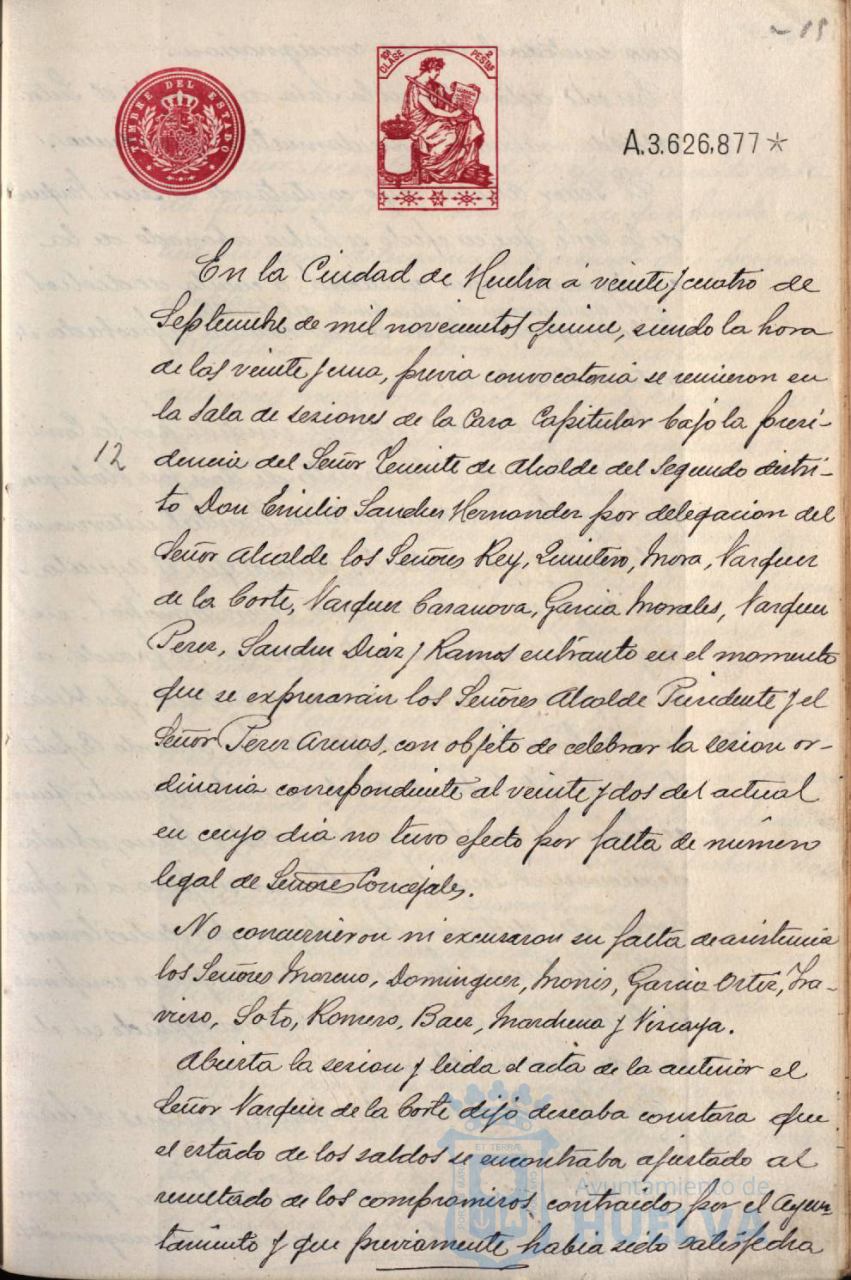 15
TIMBRE DEL ESTADO
10ª CLASE
2 PESETAS
A.3.626.877*
En la Ciudad de Huelva á veinte y cuatro de
Septiembre de mil novecientos quince, siendo la hora
de las veinte y una, previa convocatoria se reunieron en
la Sala de sesiones de la Casa Capitular bajo la presi-
12
dencia del Señor Teniente de Alcalde del Segundo distri-
to Don Emilio Sanchez Hernandez por delegacion del
Señor Alcalde los Señores Rey, Quintero, Mora, Vazquez
de la Corte, Vazquez Casanova, Garcia Morales, Vazquez
Perez, Sanchez Diáz y Ramos entrando en el momento
que se expresarán los Señores Alcalde Presidente y el
Señor Perez Arenas, con objeto de celebrar la sesion or-
dinaria correspondiente al veinte y dos del actual
en cuyo dia no tuvo efecto por falta de número
legal de Señores Concejales.
No concurrieron ni excusaron su falta de asistencia
los Señores Moreno, Dominguez, Monis, Garcia Ortiz, Tra-
viero, Soto, Romero, Baez, Marchena y Vizcaya.
Abierta la sesion y leida el acta de la anterior el
Señor Vazquez de la Corte dijo deseaba constara que
el estado de los saldos se encontraba ajustado al
resultado de los compromisos contraidos por el Ayun-
tamiento y que previamente habia sido satisfecha
ET TERRAE
Ayuntamiento de
HUELVA